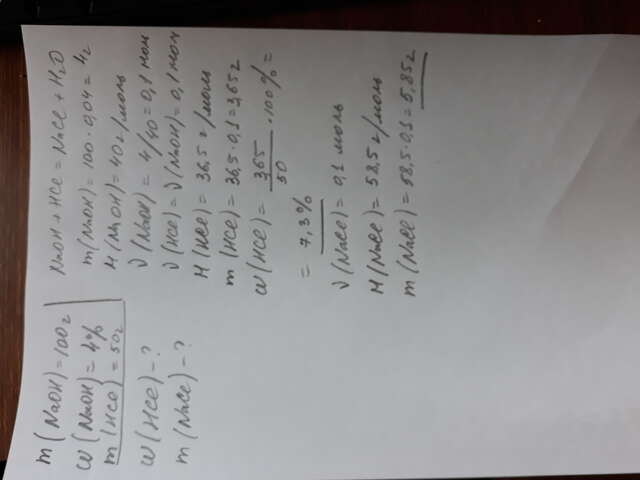 m(NaOH)=100г
ω(NaOH)=4%
m(HCl)=50г
ω(HCl)-?
m(NaCl)-?
NaOH+HCl=NaCl+H₂O
m(NaOH)=100·0,04=4г
M(NaOH)=40г/моль
ν(NaOH)=4/40=0,1моль
ν(HCl)=ν(NaOH)=0,1моль
M(HCl)=36,5г/моль
m(HCl)=36,5·0,1=3,65г
ω(HCl)=3,65/50·100%=
=7,3%
ν(NaCl)=0,1моль
M(NaCl)=58,5г/моль
m(NaCl)=58,5·0,1=5,85г